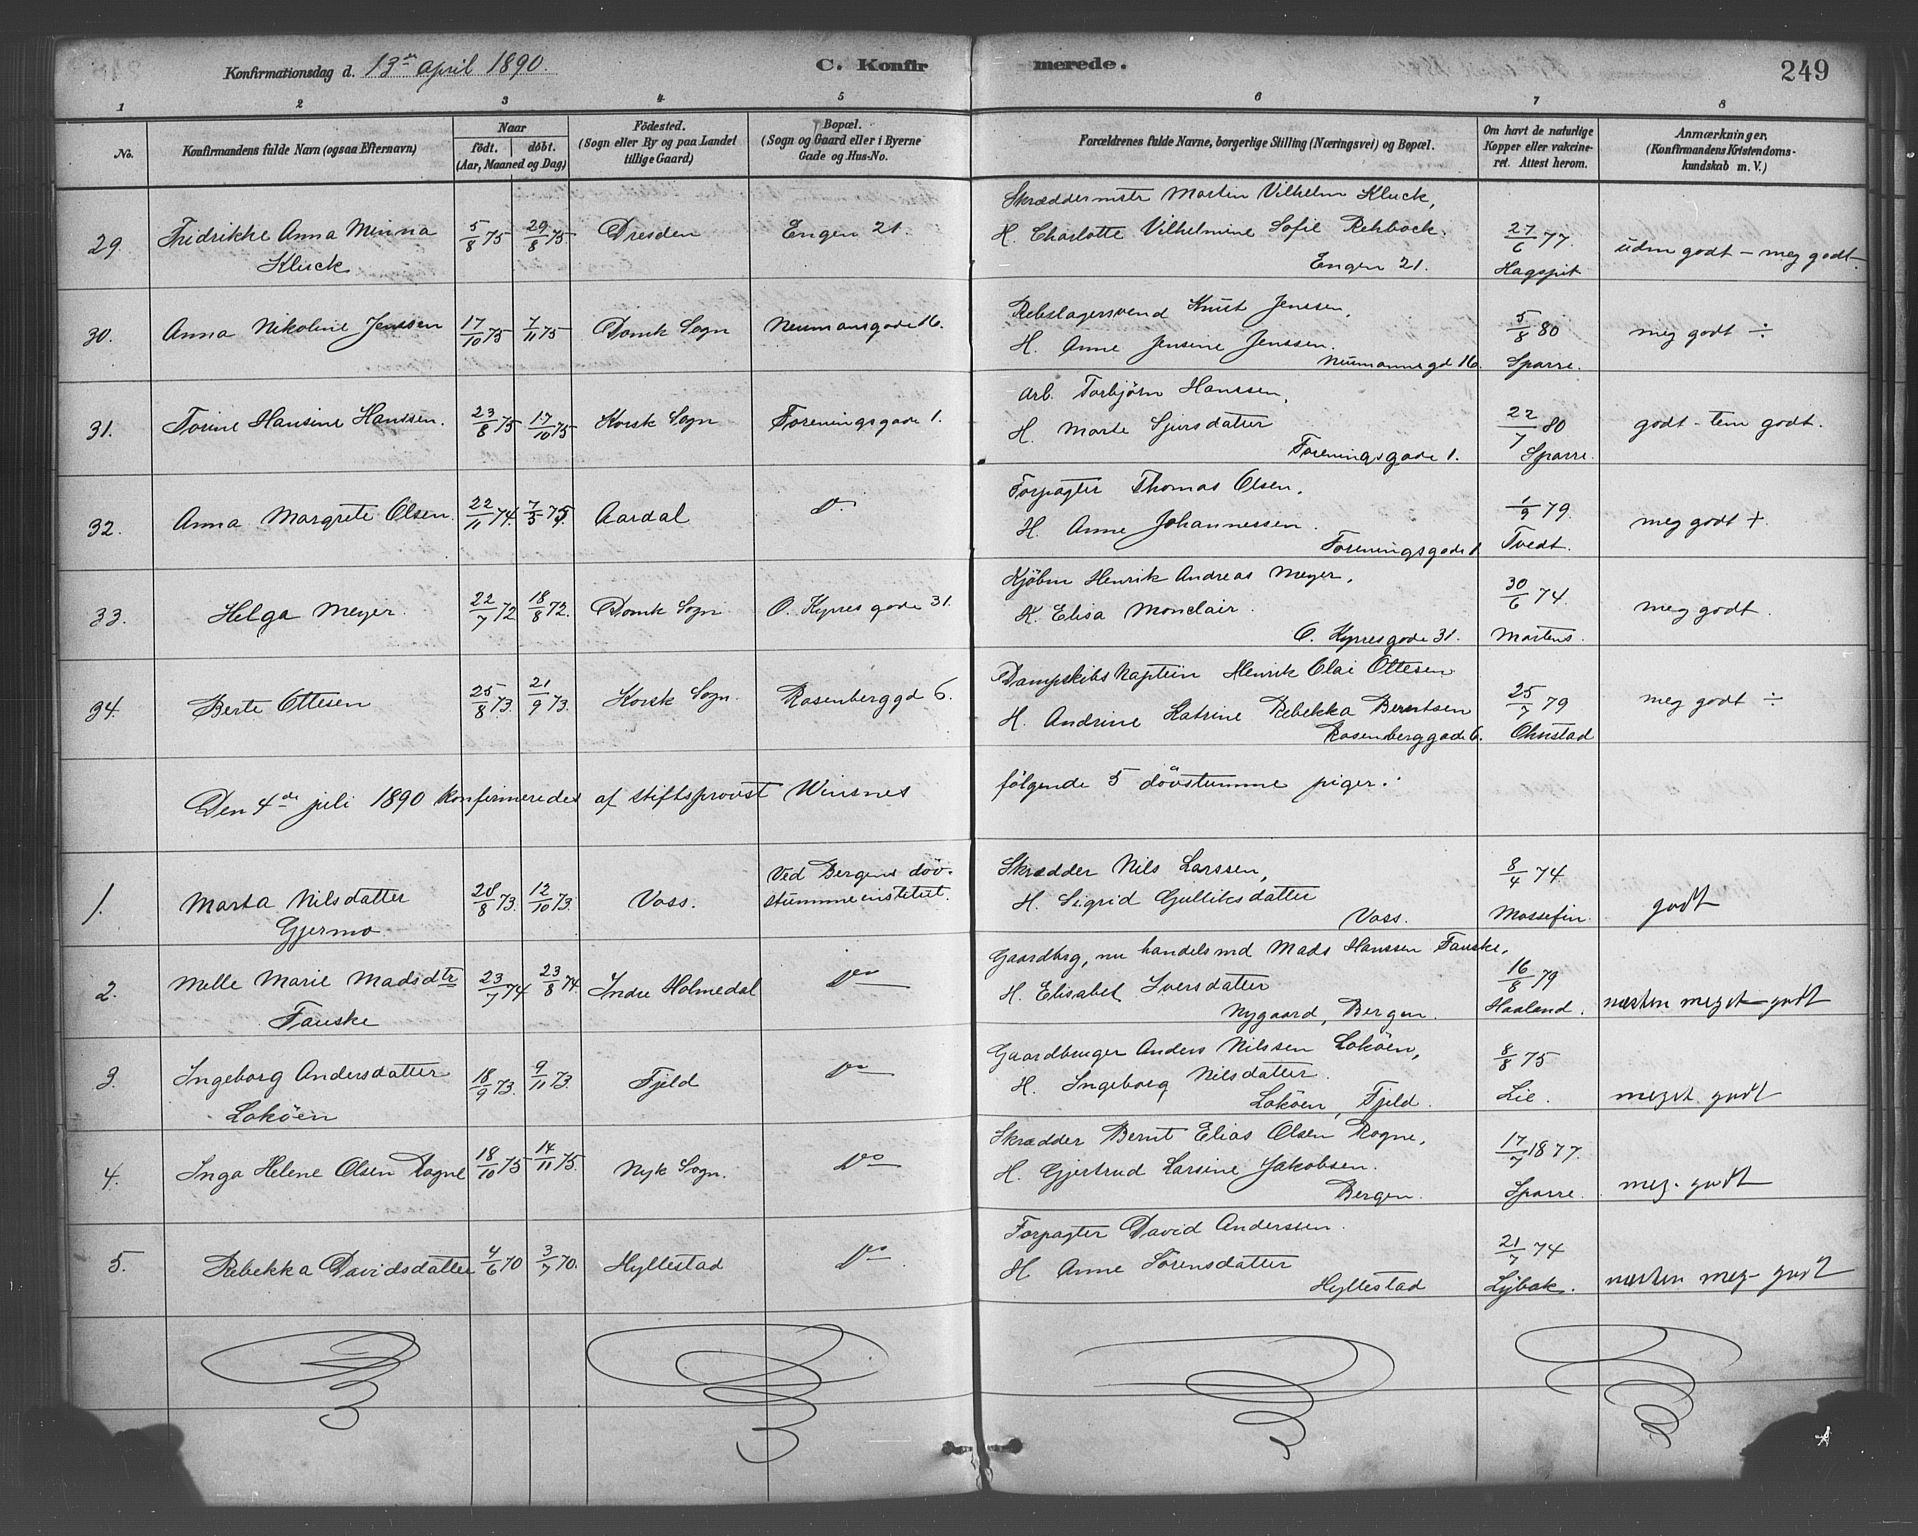 Konfirmationsdag d. 13de april 1890.
C. Konfirmerede.
249
1 2 3 4 5 6 7 8
No.
Konfirmandens fulde Navn (ogsaa Efternavn)
Naar
født. døbt.
(Aar, Maaned og Dag)
Födested.
(Sogn eller By og paa Landet
tillige Gaard)
Bopæl.
(Sogn og Gaard eller i Byerne
Gade og Hus-No.
Forældrenes fulde Navne, borgerlige Stilling (Næringsvei) og Bopæl.
Om havt de naturlige
Kopper eller vakcine-
ret. Attest herom.
Anmærkninger.
(Konfirmandens Kristendoms-
kundskab m. V.)
29. Fridrikke Anna Minna
Kluck
5/8 75 29/8 75 Dresden Engen 21.
Skræddermstr Martin Vilhelm Kluck,
H. Charlotte Vilhelmine Sofie Rehbock.
Engen 21.
27/6 77.
udm godt - meg godt.
30. Anna Nikoline Jenssen 17/10 75 7/11 75 Domk Sogn Neumansgade 16.
Rebslagersvend Knut Jenssen,
H. Anne Jensine Jenssen.
Neumannsgd 16.
5/8 80
Sparre.
meg godt ÷
31. Torine Hansine Hanssen. 23/8 75 17/10 75 Korsk Sogn Foreningsgade 1.
Arb. Torbjørn Hanssen,
H. Marte Sjursdatter
Foreningsgade 1.
22/7 80
Sparre.
godt - tem godt.
32. Anna Margrete Olsen. 22/11 74. Aardal Do
Forpagter Thomas Olsen,
H. Anne Johannessen.
Foreningsgade 1
1/9 79.
Tvedt.
meg godt +
33. Helga Meyer. 22/7 72 18/8 72. Domk Sogn. O. Kyrres gade 31.
Kjøbm Henrik Andreas Meyer,
H. Elisa Monclair.
O. Kyrresgade 31.
30/6 74.
Martens.
meg godt.
34. Berte Ottesen 25/8 73. 21/9 73. Korsk Sogn. Rosenberggd 6.
Dampskibskaptein Henrik Olai Ottesen
H. Andrine Katrine Rebekka Berntsen
Rosenberggade 6.
25/7 79
Ohnstad
meg godt ÷
Den 4de juli 1890 konfirmeredes af stiftsprovst Winsnes følgende 5 døvstumme piger:
1. Marta Nilsdatter
Gjermo
28/8 73. 12/10 73. Voss. Ved Bergens døv-
stummeinstitut.
Skrædder Nils Larssen,
H. Sigrid Gulliksdatter
Voss.
8/4 74
godt
2. Melle Marie Madsdtr
Fauske
23/7 74 23/8 74. Indre Holmedal Do
Gaardbrg, nu handelsmd Mads Hanssen Fauske,
H. Elisabet Iversdatter
Nygaard, Bergen.
16/8 79
Haaland.
næsten meget godt
3. Ingeborg Andersdatter
Lokøen
18/9 73. 9/11 73. Fjeld Do
Gaardbruger Anders Nilssen Lokøen,
H. Ingeborg Nilsdatter.
Lokøen, Fjeld.
8/8 75
Lie.
meget godt
4. Inga Helene Olsen Rogne 18/10 75 14/11 75. Nyk Sogn. Do
Skrædder Bernt Elias Olsen Rogne,
H. Gjertrud Larsine Jakobsen.
Bergen.
17/7 1877.
Sparre.
meg. godt
5. Rebekka Davidsdatter 4/6 70 3/7 70. Hyllestad Do
Forpagter David Anderssen.
H. Anne Sørensdatter
Hyllestad
21/7 74
næsten meg- godt